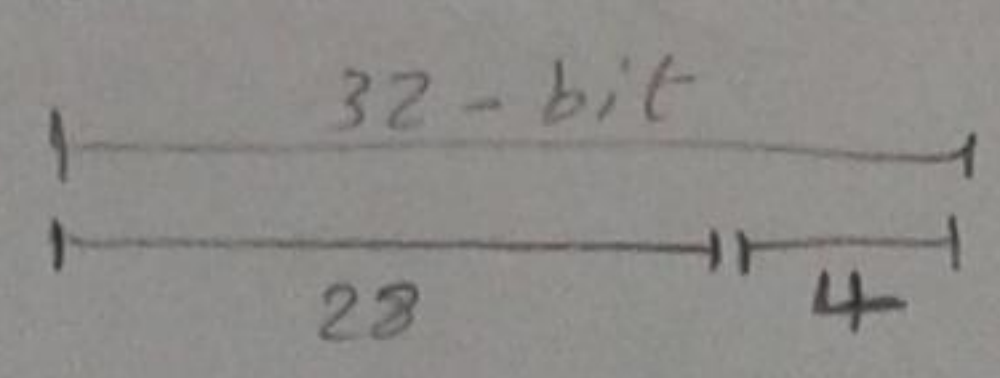 32-bit
28 4